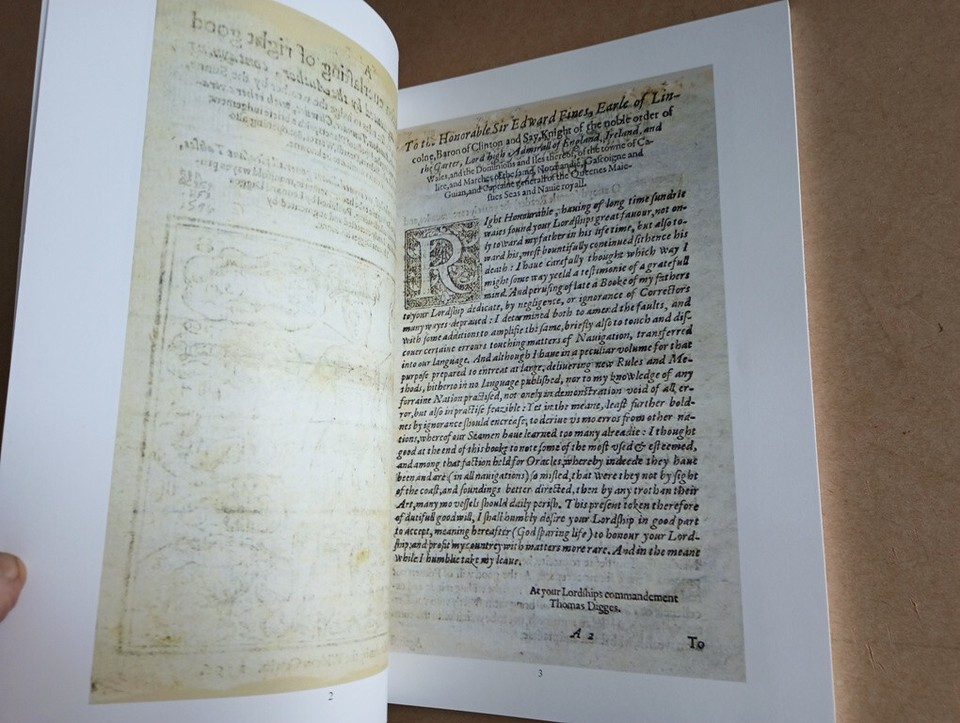 2
To the Honorable Sir Edward Fines, Earle of Lin-
colne, Baron of Clinton and Say, Knight of the noble order of
the Garter, Lord high Admirall of England, Ireland, and
Wales, and the Dominions and Iles therof, of the towne of Ca-
lice, and Marches of the same, Normandie, Gascoigne and
Guian, and Captaine generall of the Queenes Maie-
sties Seas and Nauie royall.
RIght Honourable, hauing of long time sundrie
waies found your Lordships great fauour, not on-
ly toward my father in his life time, but also to-
ward his, most bountifully continued sithence his
death: I haue carefully thought which way I
might some way yeeld a testimonie of a gratefull
mind. And perusing of late a Booke of my fathers
to your Lordship dedicate, by negligence, or ignorance of Correctors
many wayes depraued: I determined both to amend the faults, and
with some additions to amplifie the same, briefly also to touch and dis-
couer certaine errours touching matters of Nauigation, transferred
into our language. And although I haue in a peculiar volume for that
purpose prepared to entreat at large, deliuering new Rules and Me-
thods, hitherto in no language published, nor to my knowledge of any
forraine Nation practised, not onely in demonstration void of all er-
ror, but also in practise feazible: Yet in the meane, least further bold-
nes by ignorance should encrease, to deriue vs mo erros from other na-
tions, whereof our Seamen haue learned too many alreadie: I thought
good at the end of this booke to note some of the most vsed & esteemed,
and among that faction held for Oracles, whereby indeede they haue
been and are (in all nauigations) so misled, that were they not by sight
of the coast, and soundings better directed, then by any troth an their
Art, many mo vessels should daily perish. This present token therefore
of dutifull goodwill, I shall humbly desire your Lordship in good part
to accept, meaning hereafter (God sparing life) to honour your Lord-
ship, and profit my countrey with matters more rare. And in the meane
while I humblie take my leaue.
At your Lordships commandement
Thomas Digges.
A 2
To
3